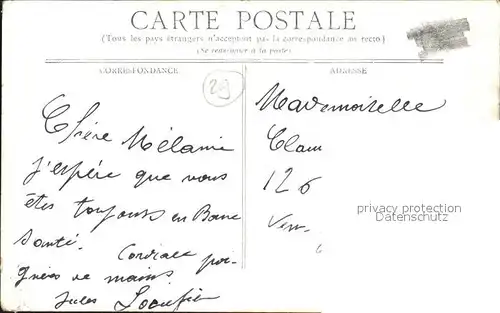 CARTE POSTALE
(Tous les pays étrangers n'acceptent pas la correspondance au recto.)
(Se renseigner à la poste)
CORRESPONDANCE
ADRESSE
29
Chère Mélanie
j'espère que vous
êtes toujours en Bonne
santé. Cordiale poi-
gnées de mains.
Jules
Mademoiselle
Clam
126
privacy protection
Datenschutz